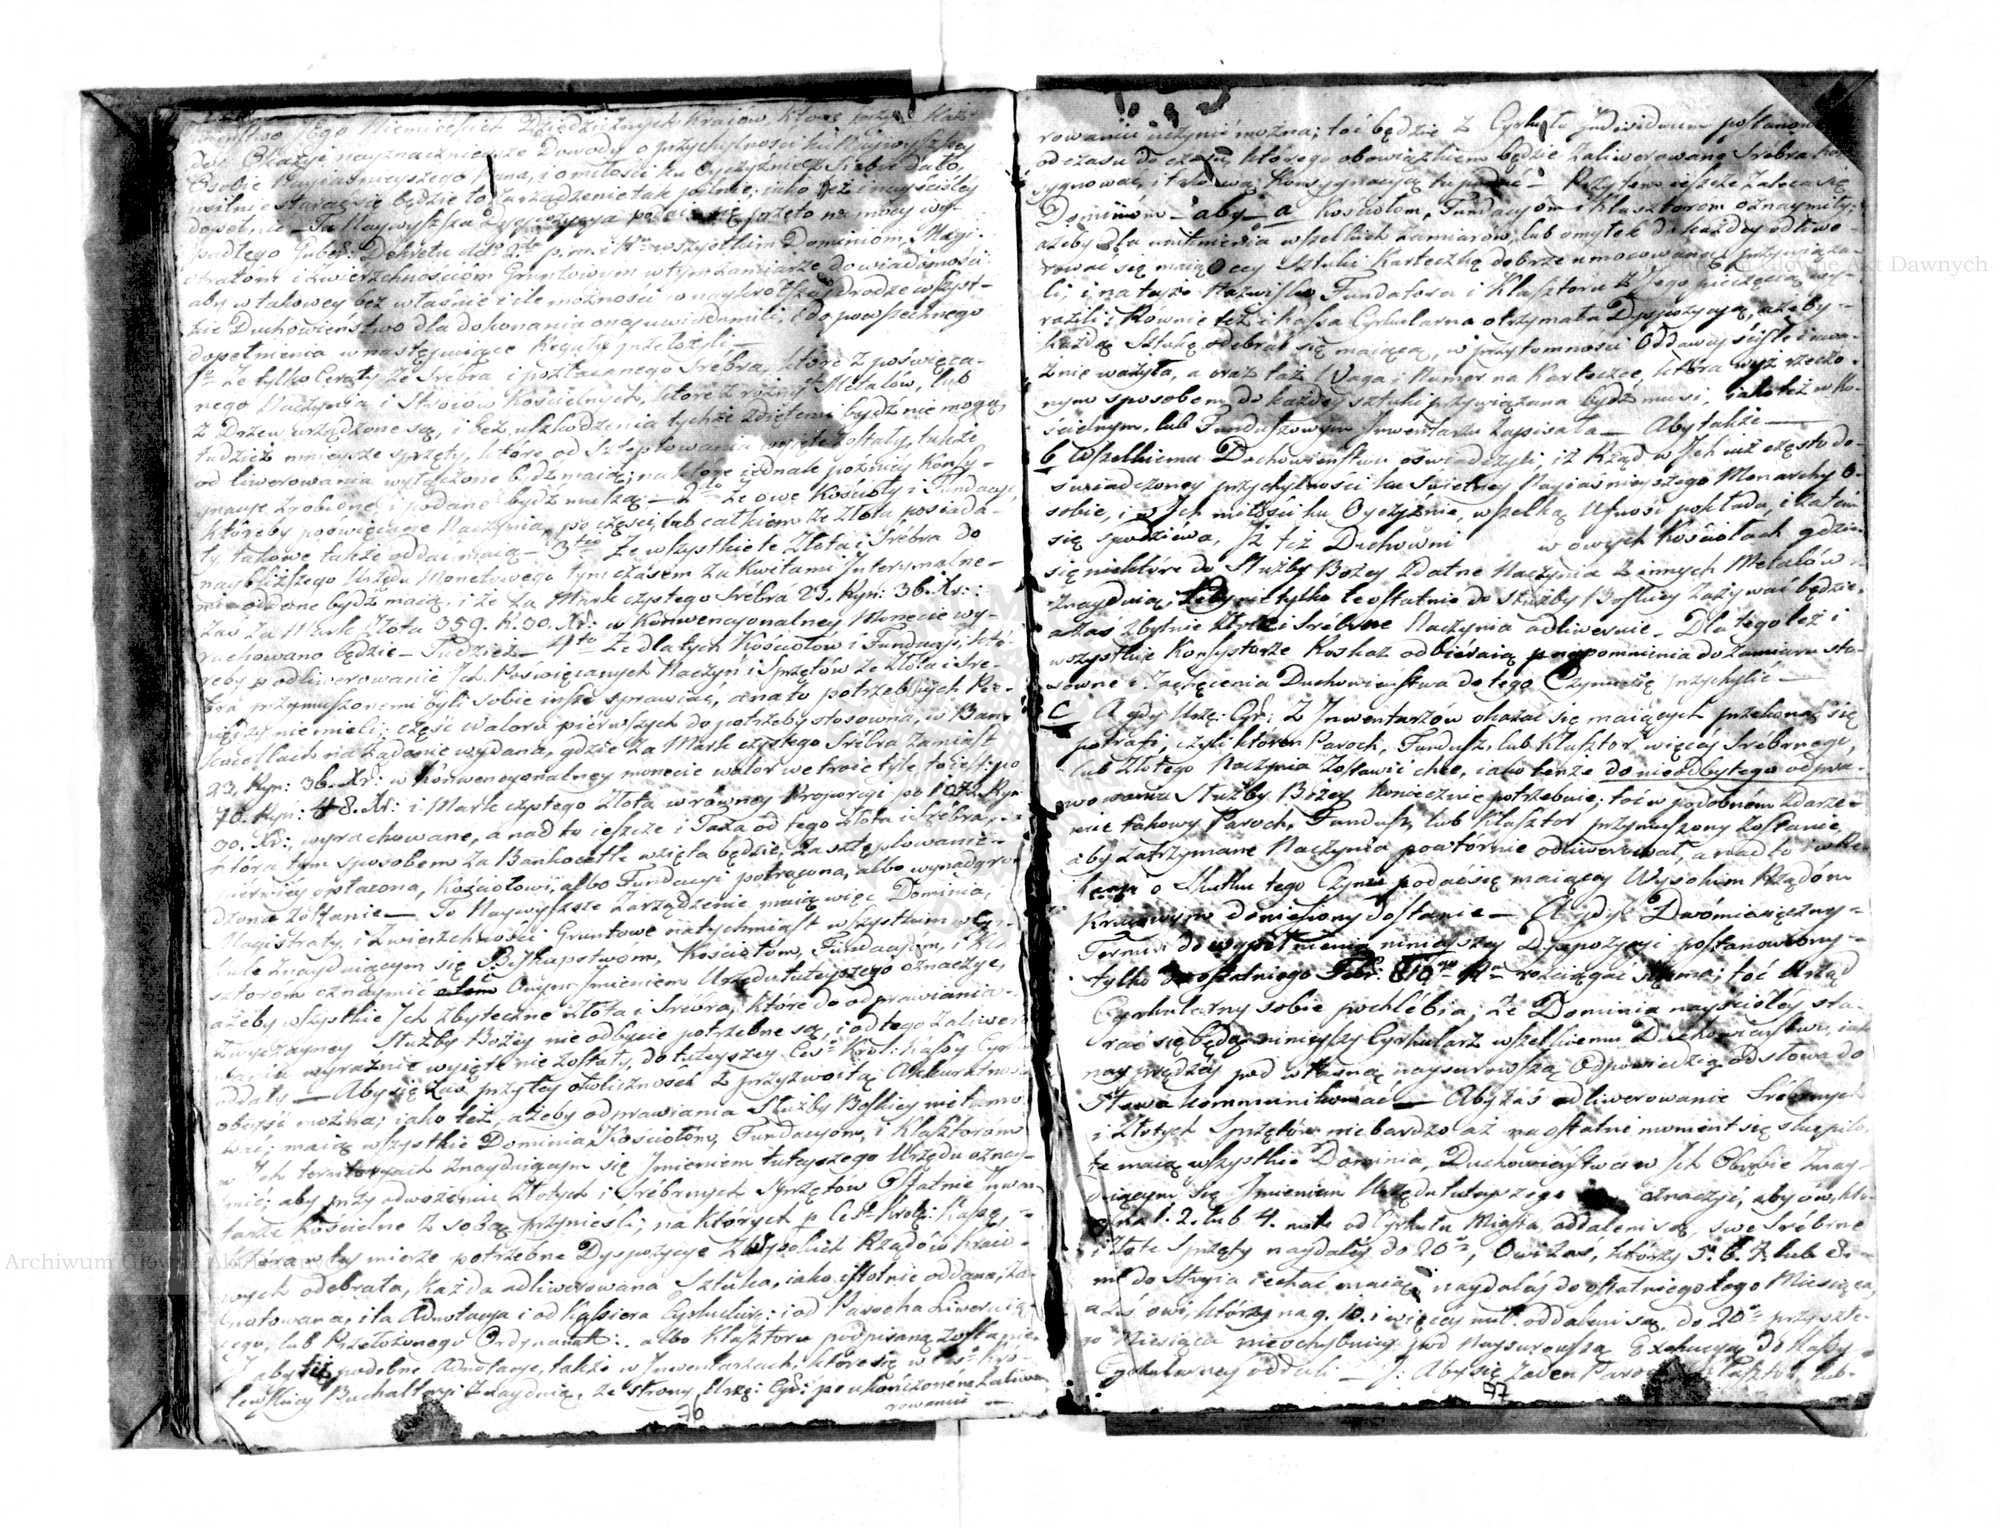 Niemieckich Dziedzicznych Kraiów, które przy każ-
dey Okazyi nayznacznieysze Dowody o przychylności ku Naywyższey
Osobie Nayiaśnieyszego Pana, i o miłości ku Oyczyźnie z Siebie dało,
usilnie starać się będzie to zarządzenie tak pilnie, iako też i nayściśley
dopełnić — Ta Naywyższa Dyspozycya podaie się przeto na mocy wy-
padłego Guber: Dekretu dto 2da p. m. i r. wszystkim Dominiom, Magi-
stratom i Zwierzchnościom Gruntowym w tym zamiarze do wiadomości
aby w takowey też właśnie ile możności w naykrótszey drodze wszyst-
kie Duchowieństwo dla dokonania oney uwiadomili, i do powszechnego
dopełnienia w następuiące Reguły przełożyli —
1o Że tylko Ceraty ze Srebra i pozłacanego Srebra, które z poświęca-
nego Naczynia i Stroiów Kościelnych, które z różnych Metalów, lub
z Drzew urządzone są, i bez uszkodzenia tychże zdiętemi bydź nie mogą,
tudzież mnieysze sprzęty, które od Sztęplowania wyięte zostały, także
od liwerowania wyłączone bydź maią; na które iednak poźniey Konsy-
gnacye zrobione i podane bydź muszą — 2do Że owe Kościoły i Fundacye,
któreby poświęcone Naczynia po części lub całkiem ze Złota posiada-
ły, takowe także oddać maią — 3tio Że wszystkie te Złota i Srebra do
naybliższego Urzędu Monetowego tymczasem za Kwitami Interymalne-
mi oddane bydź maią, i że za Mark czystego Srebra 23. Ryn: 36. Xr:
Zaś za Mark Złota 359. R. 30. Xr: w Konwencyonalney Monecie wy-
rachowano będzie — Tudzież — 4to Że dla tych Kościołów i Fundacyi, któ-
reby po odliwerowaniu Ich Poświęcanych Naczyń i Sprzętów ze Złota i Sre-
bra przymuszonemi byli sobie insze sprawiać, a na to potrzebnych Pie-
niędzy nie mieli; część waloru pierwszych do potrzeby stosowna, w Ban-
kocetlach na żądanie wydana, gdzie za Mark czystego Srebra zamiast
23. Ryn: 36. Xr: w Konwencyonalney monecie walor we troie tyle, to iest: po
70. Ryn: 48. Xr: i Mark czystego Złota w równey Proporcyi po 1078. Ryn
30. Xr: wyrachowane, a nad to ieszcze i Taxa od tego Złota i Srebra,
która tym sposobem za Bankocetle wzięta będzie, za sztęplowanie
opłacona, Kościołowi, albo Fundacyi potrącona, albo wynadgro-
dzona zostanie — To Naywyższe zarządzenie maią więc Dominia,
Magistraty, i Zwierzchności Gruntowe natychmiast wszystkim w Cyr-
kule znayduiącym się Biskupstwom, Kościołom, Fundacyom, i Kla-
sztorom oznaymić Onym Imieniem Urzędu tuteyszego oznaczyć,
ażeby wszystkie Ich zbyteczne Złota i Srebra, które do odprawiania
zwyczayney Służby Bożey nie odbycie potrzebne są, i od tego zaliwero-
wania wyraźnie wyięte nie zostały, do tuteyszey Ces: Król: Kassy Cyrku
oddały — Aby się zaś przy tey okoliczności z przyzwoitą Akkuratnoś
obeyść można; iako też, ażeby odprawiania Służby Boskiey nie tamo-
wać; maią wszystkie Dominia Kościołom, Fundacyom, i Klasztorom
w Ich territoryach znayduiącym się Imieniem tuteyszego Urzędu oznay-
mić; aby przy odwożeniu Złotych i Srebrnych Sprzętów Ostatnie Inwen-
tarze Kościelne z sobą przynieśli; na których p. Ces: Król: Kassę,
która w tey mierze potrzebne Dyspozycye z Wysokich Rządów Kraio-
wych odebrała, każda odliwerowana Sztuka, iako istotnie oddana, za-
notowana, i ta Adnotacya i od Kassiera Cyrkular: i od Parocha Liweruią-
cego, lub Przełożonego Ordynanta: albo Klasztoru podpisaną zostanie.
I aby też podobne Adnotacye, także w Inwentarzach, które się w Ces: Kró-
lewskiey Buchalteryi znayduią, ze strony Urzę: Cyr: po ukończonem zaliwe-
rowaniu —
76
rowaniu uczynić można; toć będzie z Cyrkułu Individuum postanow
od czasu do czasu, którego obowiązkiem będzie zaliwerowane Srebra kon-
sygnować, i takową Konsygnacyą tu podać — Przytem ieszcze zaleca się
Dominiom — aby — a Kościołom, Fundacyom i Klasztorom oznaymiły;
ażeby dla uniknienia wszelkich zamiarów, lub omyłek do każdey odliwe-
rować się maiącey Sztuki Karteczkę dobrze umocowaną przywiąza-
li; i na teyże Nazwisko Fundatora i Klasztoru z Jego pieczęcią wy-
razili; Równie też i Kassa Cyrkularna otrzymała Dyspozycyą, ażeby
każdą Sztukę odebrać się maiącą, w przytomności Oddawcy ściśle i uwa-
żnie ważyła, a oraz taż Waga i Numer na Karteczce, która wyż rzeczo-
nym sposobem do każdey sztuki przywiązana bydź musi; iako też w Ko-
ścielnym, lub Funduszowym Inwentarzu zapisała — Aby także —
b Wszelkiemu Duchowieństwu oświadczyli, iż Rząd w Ich iuż często do-
świadczoney przychylności ku Świetney Nayiaśnieyszego Monarchy O-
sobie, i w Ich miłości ku Oyczyźnie, wszelką Ufność pokłada, i zatem
się spodziewa, Iż też Duchowni w owych Kościołach gdzie
się niektóre do Służby Bożey zdatne Naczynia z innych Metalów
znayduią, żeby nie tylko te ostatnie do Służby Boskiey zażywać będzie,
a zaś zbytnie Złote i Srebrne Naczynia odliweruie. Dla tego też i
wszystkie Konsystorze Rozkaz odbieraią napomnienia do zamiaru sto-
sowne i Zachęcenia Duchowieństwa do tego Czynu się przychylić —
C A gdy Urzę: Cyr: z Inwentarzów okazać się maiących przekonać się
potrafi, czyli któren Paroch, Fundusz, lub Klasztor więcey Srebrnego,
lub Złotego Naczynia zostawić chce, iako tenże do nieodbytego odpra-
wowania Służby Bożey koniecznie potrzebuie; toć w podobnem zdarze-
nie takowy Paroch, Fundusz, lub Klasztor przymuszony zostanie,
aby zatrzymane Naczynia powtórnie odliwerował, a nad to w Re-
lacyi o Skutku tego Czynu podać się maiącey Wysokim Rządom
Kraiowym doniesiony zostanie — A gdy Dwómiesięczny
Termin do wypełnienia ninieyszey Dyspozycyi postanowiony
tylko do ostatniego Febr: 810 rozciągać się ma; toć Urząd
Cyrkularny sobie pochlebia; że Dominia nayściśley sta-
rać się będą ninieyszy Cyrkularz wszelkiemu Duchowieństwu, iak
nayprędzey pod własną naysurowszą Odpowiedzią od słowa do
słowa kommunikować — Aby zaś odliwerowanie Srebrnych
i Złotych Sprzętów nie bardzo aż na ostatni moment się skupiło,
te maią wszystkie Dominia, Duchowieństwu w Ich Obrębie znay-
duiącym się Imieniem Urzędu tuteyszego oznaczyć, aby ów, któ-
rzy 1. 2. lub 4. mile od Cyrkułu Miasta oddaleni są, swe Srebrne
i Złote Sprzęty naydaley do 20o, Owi zaś, którzy 5. 6. 7. lub 8.
mil do Stryia iechać maią, naydaley do ostatniego tego Miesiąca,
a zaś owi, którzy na 9. 10. i więcey mil oddaleni są, do 20o przyszłe-
go Miesiąca nieochybnie pod Naysurowszą Exekucyą do Kassy
Cyrkularney oddali — J: Aby się żaden Paroch, Klasztor, lub
77
Archiwum Główne Akt Dawnych
Archiwum Główne Akt Dawnych